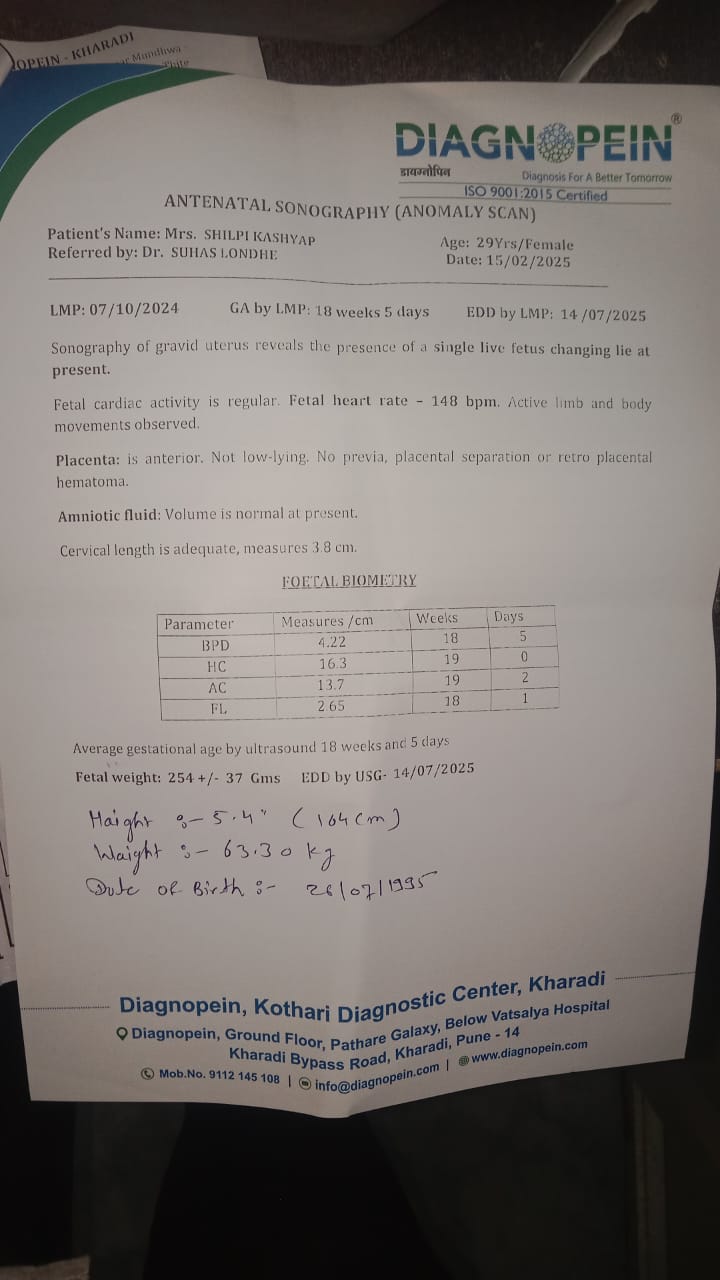 OPEIN - KHARADI
Mundhwa
DIAGNOPEIN®
डायग्नोपिन
Diagnosis For A Better Tomorrow
ISO 9001:2015 Certified
ANTENATAL SONOGRAPHY (ANOMALY SCAN)
Patient's Name: Mrs. SHILPI KASHYAP Age: 29Yrs/Female
Referred by: Dr. SUHAS LONDHE Date: 15/02/2025
LMP: 07/10/2024 GA by LMP: 18 weeks 5 days EDD by LMP: 14 /07/2025
Sonography of gravid uterus reveals the presence of a single live fetus changing lie at
present.
Fetal cardiac activity is regular. Fetal heart rate – 148 bpm. Active limb and body
movements observed.
Placenta: is anterior. Not low-lying. No previa, placental separation or retro placental
hematoma.
Amniotic fluid: Volume is normal at present.
Cervical length is adequate, measures 3.8 cm.
FOETAL BIOMETRY
Parameter Measures /cm Weeks Days
BPD 4.22 18 5
HC 16.3 19 0
AC 13.7 19 2
FL 2.65 18 1
Average gestational age by ultrasound 18 weeks and 5 days
Fetal weight: 254 +/- 37 Gms EDD by USG- 14/07/2025
Haight :- 5.4" (164 cm)
Waight :- 63.30 kg
Date of Birth :- 26/07/1995
Diagnopein, Kothari Diagnostic Center, Kharadi
Diagnopein, Ground Floor, Pathare Galaxy, Below Vatsalya Hospital
Kharadi Bypass Road, Kharadi, Pune - 14
Mob.No. 9112 145 108 | info@diagnopein.com | www.diagnopein.com